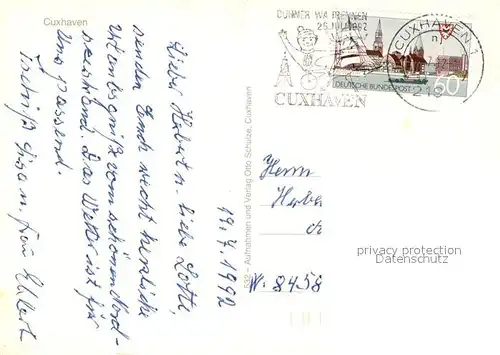 Cuxhaven
DUHNER WATTRENNEN
26. JULI 1992
CUXHAVEN
CUXHAVEN 1
DEUTSCHE BUNDESPOST
60
19.7.1992
Lieber Herbert u. liebe Lotte,
senden Euch recht herzliche
Urlaubsgrüße vom schönen Nord-
seestrand. Das Wetter ist für
uns passend.
Tschüß Gisa u. Frau Ehlert
532 – Aufnahmen und Verlag Otto Schulze, Cuxhaven
Herrn
Herbe
W. 8458
privacy protection
Datenschutz